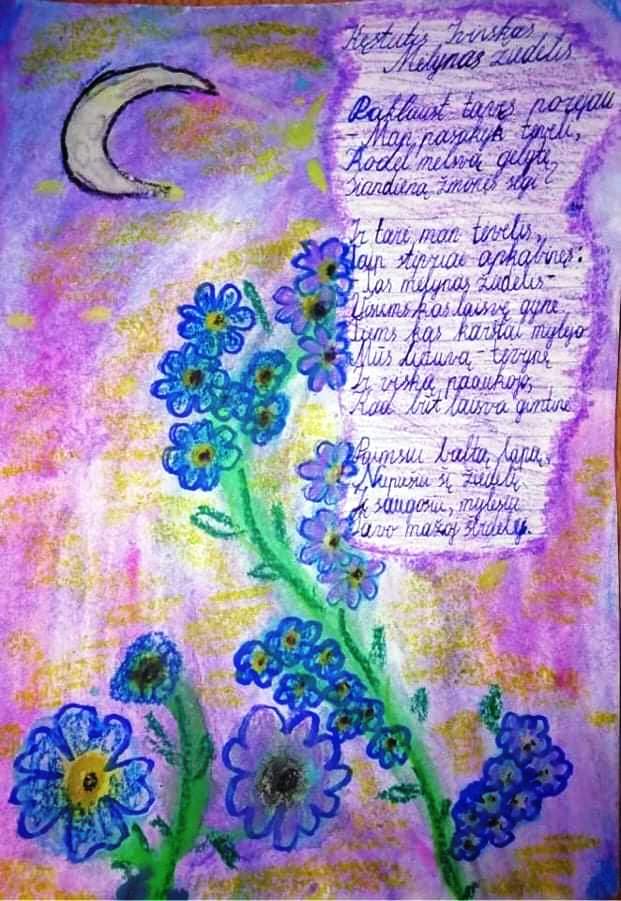 Kęstutis Ivinskas
Mėlynas žiedelis
Paklaust tavęs norėjau
- Man pasakyk tėveli,
Kodėl melsvą gėlytę
Šiandieną žmonės segi?
Ir tarė man tėvelis,
Taip stipriai apkabinęs:
- Tas mėlynas žiedelis -
Visims kas laisvę gynė
Tiems kas karštai mylėjo
Mūs Lietuvą - tėvynę
Ir viską paaukojo,
Kad būt laisva gimtinė
Paimsiu baltą lapą,
Nupiešiu šį žiedelį
Jį saugosiu, mylėsiu
Savo mažoj širdelėj.